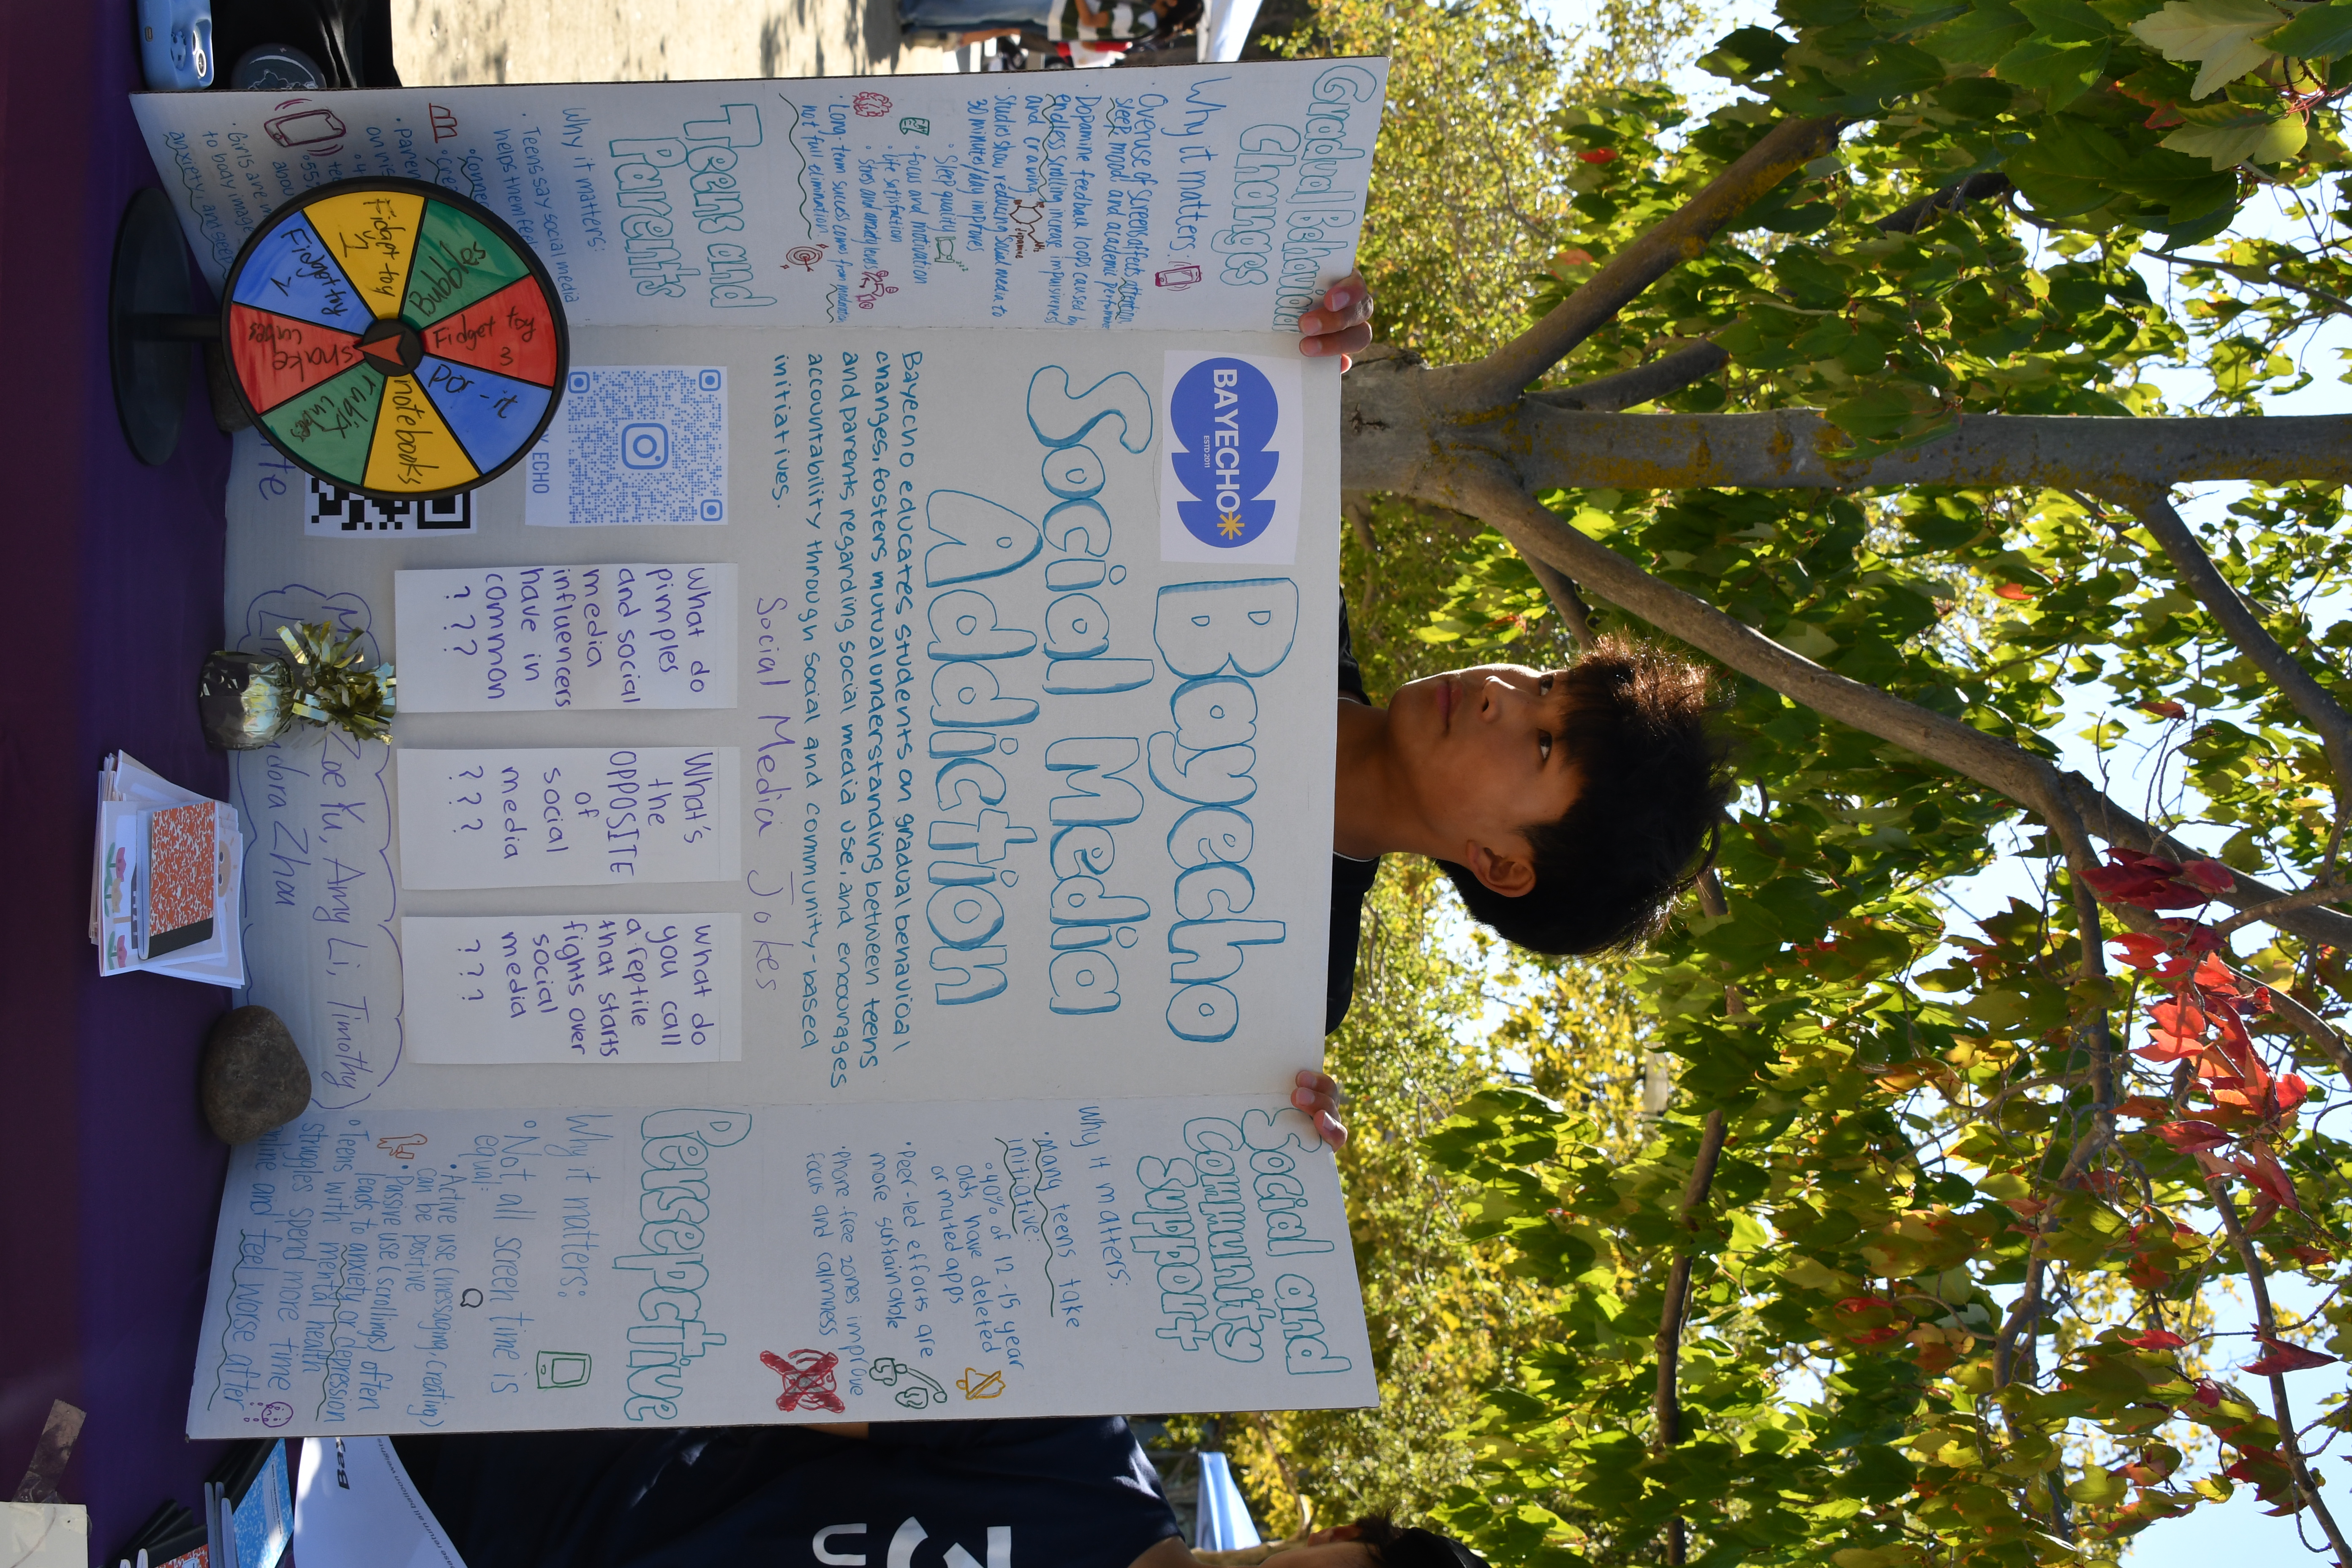 Gradual Behavioral
Changes
Why it matters:
• Overuse of screens affects attention,
sleep, mood and academic performance
• Dopamine feedback loop caused by
endless scrolling increase impulsiveness
and craving
• Studies show reducing social media to
30 minutes/day improves
• Sleep quality
• Focus and motivation
• Life satisfaction
• Stress and anxiety levels
• Long-term success comes from
not full elimination
Teens and
Parents
Why it matters:
• Teens say social media
helps them feel
• Girls are
to body image
anxiety, and sleep
BAYECHO
ESTD 2011
Bayecho
Social Media
Addiction
Bayecho educates students on gradual behavioral
changes, fosters mutual understanding between teens
and parents regarding social media use, and encourages
accountability through social and community-based
initiatives.
Social Media Jokes
Y ECHO
What do
pimples
and social
media
influencers
have in
common
? ? ?
What's
the
OPPOSITE
of
social
media
? ? ?
What do
you call
a reptile
that starts
fights over
social
media
? ? ?
Zoe Yu, Amy Li, Timothy
Zhan
Social and
Community
Support
Why it matters:
• Many teens take
initiative:
• 40% of 12-15 year
olds have deleted
or muted apps
• Peer-led efforts are
more sustainable
• Phone-free zones improve
focus and calmness
Persepective
Why it matters:
• Not all screen time is
equal:
• Active use (messaging, creating)
can be positive
• Passive use (scrollings) often
lends to anxiety or depression
• Teens with mental health
struggles spend more time
online and feel worse after
Bubbles
Fidget toy
3
pop-it
notebooks
rubix
cubes
snake
cubes
Fidget toy
2
Fidget toy
1